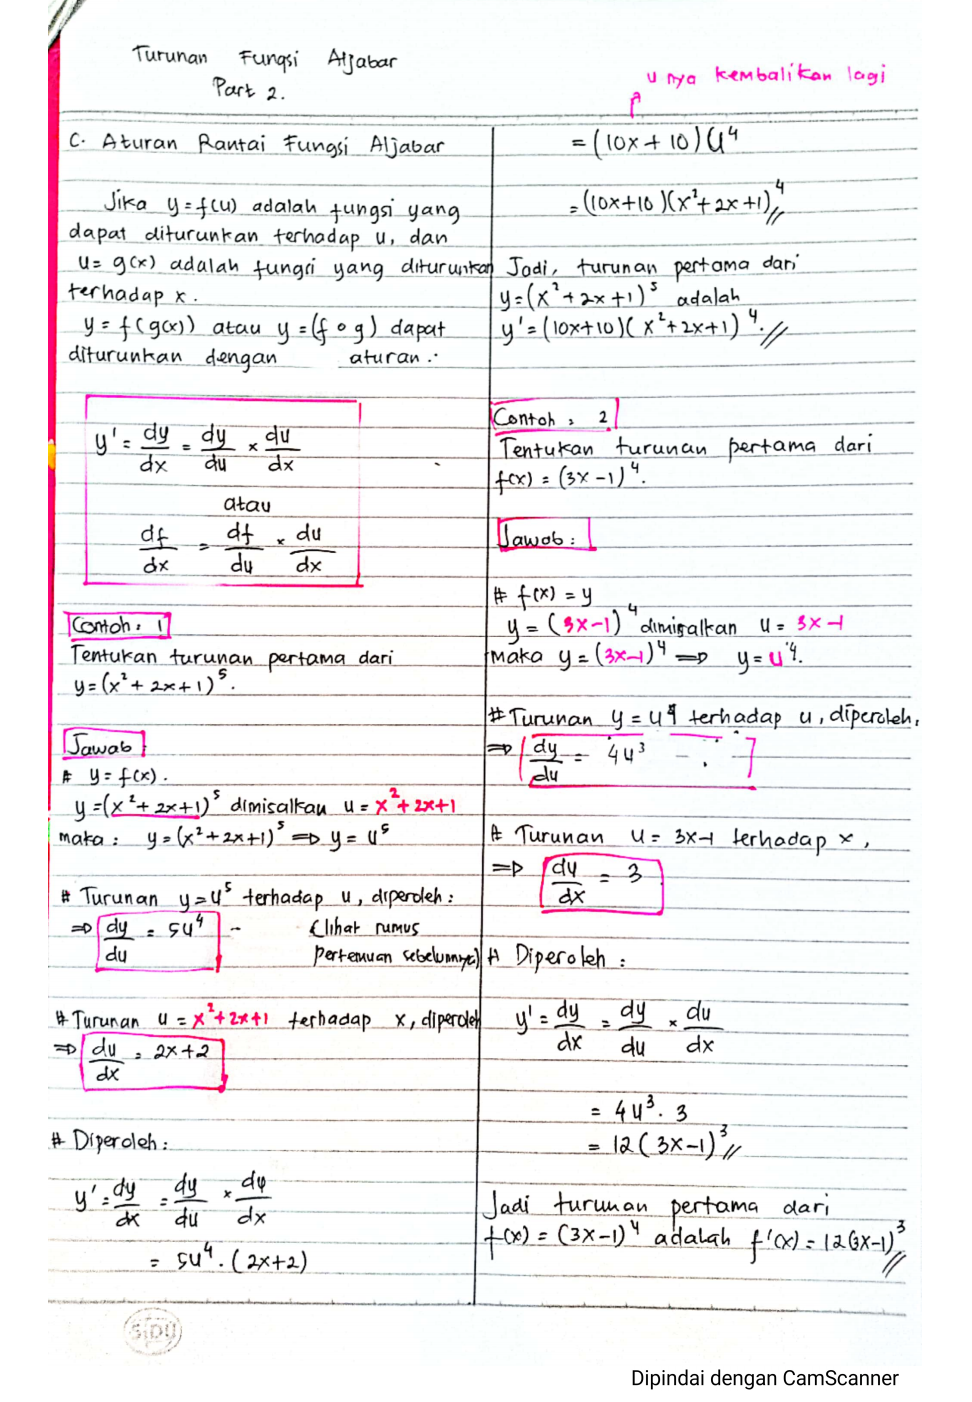 Turunan Fungsi Aljabar
Part 2.
C. Aturan Rantai Fungsi Aljabar
Jika y = f(u) adalah fungsi yang
dapat diturunkan terhadap u, dan
u = g(x) adalah fungsi yang diturunkan
terhadap x.
y = f(g(x)) atau y = (f ∘ g) dapat
diturunkan dengan aturan :
y' = dy/dx = dy/du × du/dx
atau
df/dx = df/du × du/dx
Contoh : 1
Tentukan turunan pertama dari
y = (x² + 2x + 1)⁵.
Jawab :
# y = f(x).
y = (x² + 2x + 1)⁵ dimisalkan u = x² + 2x + 1
maka : y = (x² + 2x + 1)⁵ ⇒ y = u⁵
# Turunan y = u⁵ terhadap u, diperoleh :
⇒ dy/du = 5u⁴ - (lihat rumus
pertemuan sebelumnya)
# Turunan u = x² + 2x + 1 terhadap x, diperoleh
⇒ du/dx = 2x + 2
# Diperoleh :
y' = dy/dx = dy/du × du/dx
= 5u⁴ . (2x + 2)
u nya kembalikan lagi
= (10x + 10) u⁴
= (10x + 10)(x² + 2x + 1)⁴ //
Jadi, turunan pertama dari
y = (x² + 2x + 1)⁵ adalah
y' = (10x + 10)(x² + 2x + 1)⁴. //
Contoh : 2
Tentukan turunan pertama dari
f(x) = (3x - 1)⁴.
Jawab :
# f(x) = y
y = (3x - 1)⁴ dimisalkan u = 3x - 1
Maka y = (3x - 1)⁴ ⇒ y = u⁴.
# Turunan y = u⁴ terhadap u, diperoleh,
⇒ dy/du = 4u³
# Turunan u = 3x - 1 terhadap x,
⇒ dy/dx = 3
# Diperoleh :
y' = dy/dx = dy/du × du/dx
= 4u³ . 3
= 12 (3x - 1)³ //
Jadi turunan pertama dari
f(x) = (3x - 1)⁴ adalah f'(x) = 12(3x - 1)³ //
SIDU
Dipindai dengan CamScanner